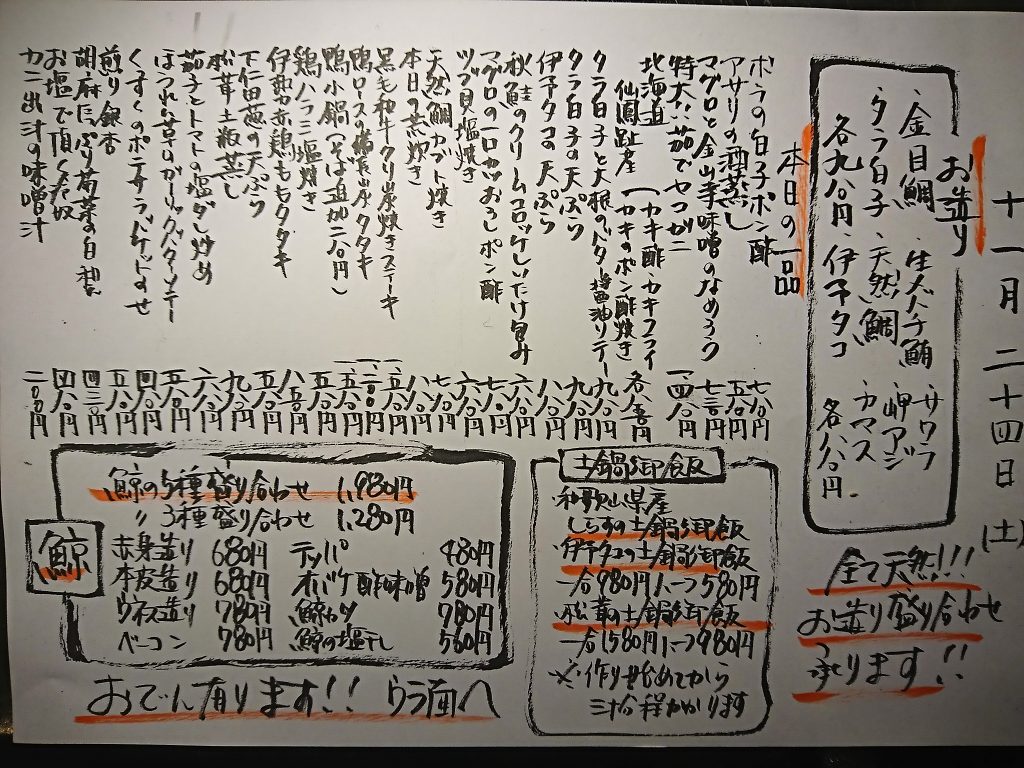 十一月二十四日(土)
お造り
・金目鯛 ・生本チ鮪 ・サワラ
・タラ白子 ・天然鯛 ・岬アジ
・伊予タコ ・カマス
各九八〇円 各八八〇円
全て天然!!!
お造り盛り合わせ
承ります!!
本日の一品
ボラの白子ポン酢 七八〇円
アサリの酒蒸し 五八〇円
マグロと金山寺味噌のなめろう 七三〇円
特大!!茹でセコガニ 一、四八〇円
北海道 仙鳳趾産 (カキ酢・カキフライ カキのポン酢焼き) 各八五〇円
タラ白子と大根のバター醤油ソテー 九八〇円
タラ白子の天ぷら 九八〇円
伊予タコの天ぷら 八八〇円
秋鮭のクリームコロッケしいたけ包み 六八〇円
マグロの一口カツおろしポン酢 七八〇円
ツブ貝塩焼き 六八〇円
天然鯛カブト焼き 七八〇円
本日の煮炊き 八八〇円
黒毛和牛クリ炭焼きステーキ
鴨ロースの備長炭タタキ
鴨小鍋(そば追加二八〇円)
鶏ハラミ塩焼き 五八〇円
伊勢赤鶏ももタタキ 八五〇円
下仁田葱の天ぷら 五八〇円
松茸土瓶蒸し 九八〇円
茄子とトマトの塩ダレ炒め 六八〇円
ほうれん草のガーリックバターソテー 五八〇円
くずくずのポテサラバゲットのせ 四八〇円
煎り銀杏 五八〇円
胡麻たっぷり菊菜の白和え 四三〇円
お塩で頂く冷奴 四八〇円
カニ出汁の味噌汁 二八〇円
土鍋御飯
・和歌山県産
しらすの土鍋御飯
・伊予タコの土鍋御飯
一合980円 ハーフ580円
・松茸の土鍋御飯
一合1,580円 ハーフ980円
※作り始めてから
三十分程かかります
鯨
鯨の5種盛り合わせ 1,980円
〃 3種盛り合わせ 1,280円
赤身造り 680円 テッパ 480円
本皮造り 680円 オバケ酢味噌 580円
ウネ造り 780円 鯨カツ 780円
ベーコン 780円 鯨の塩干し 560円
おでん有ります!! ウラ面へ